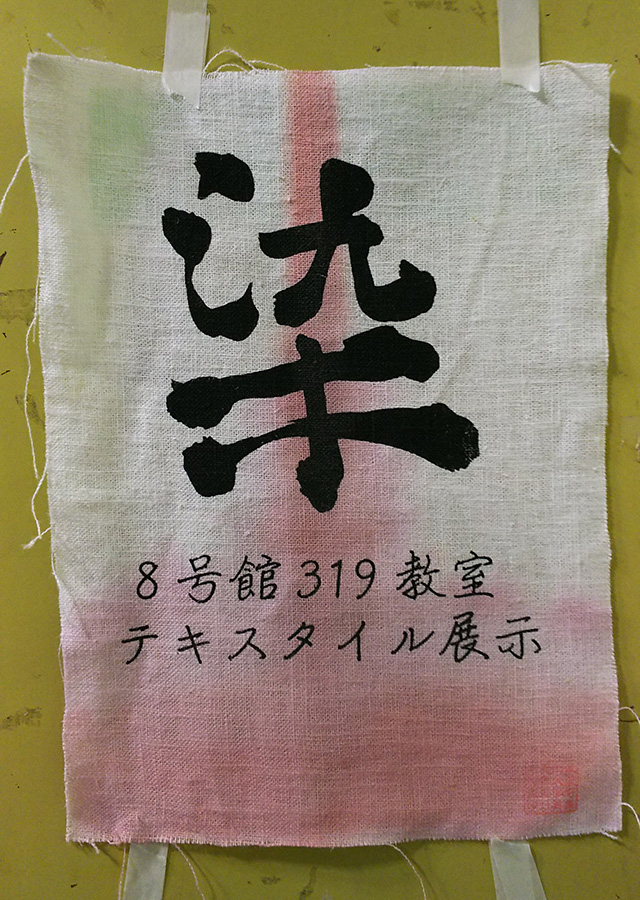 染
8号館319教室
テキスタイル展示